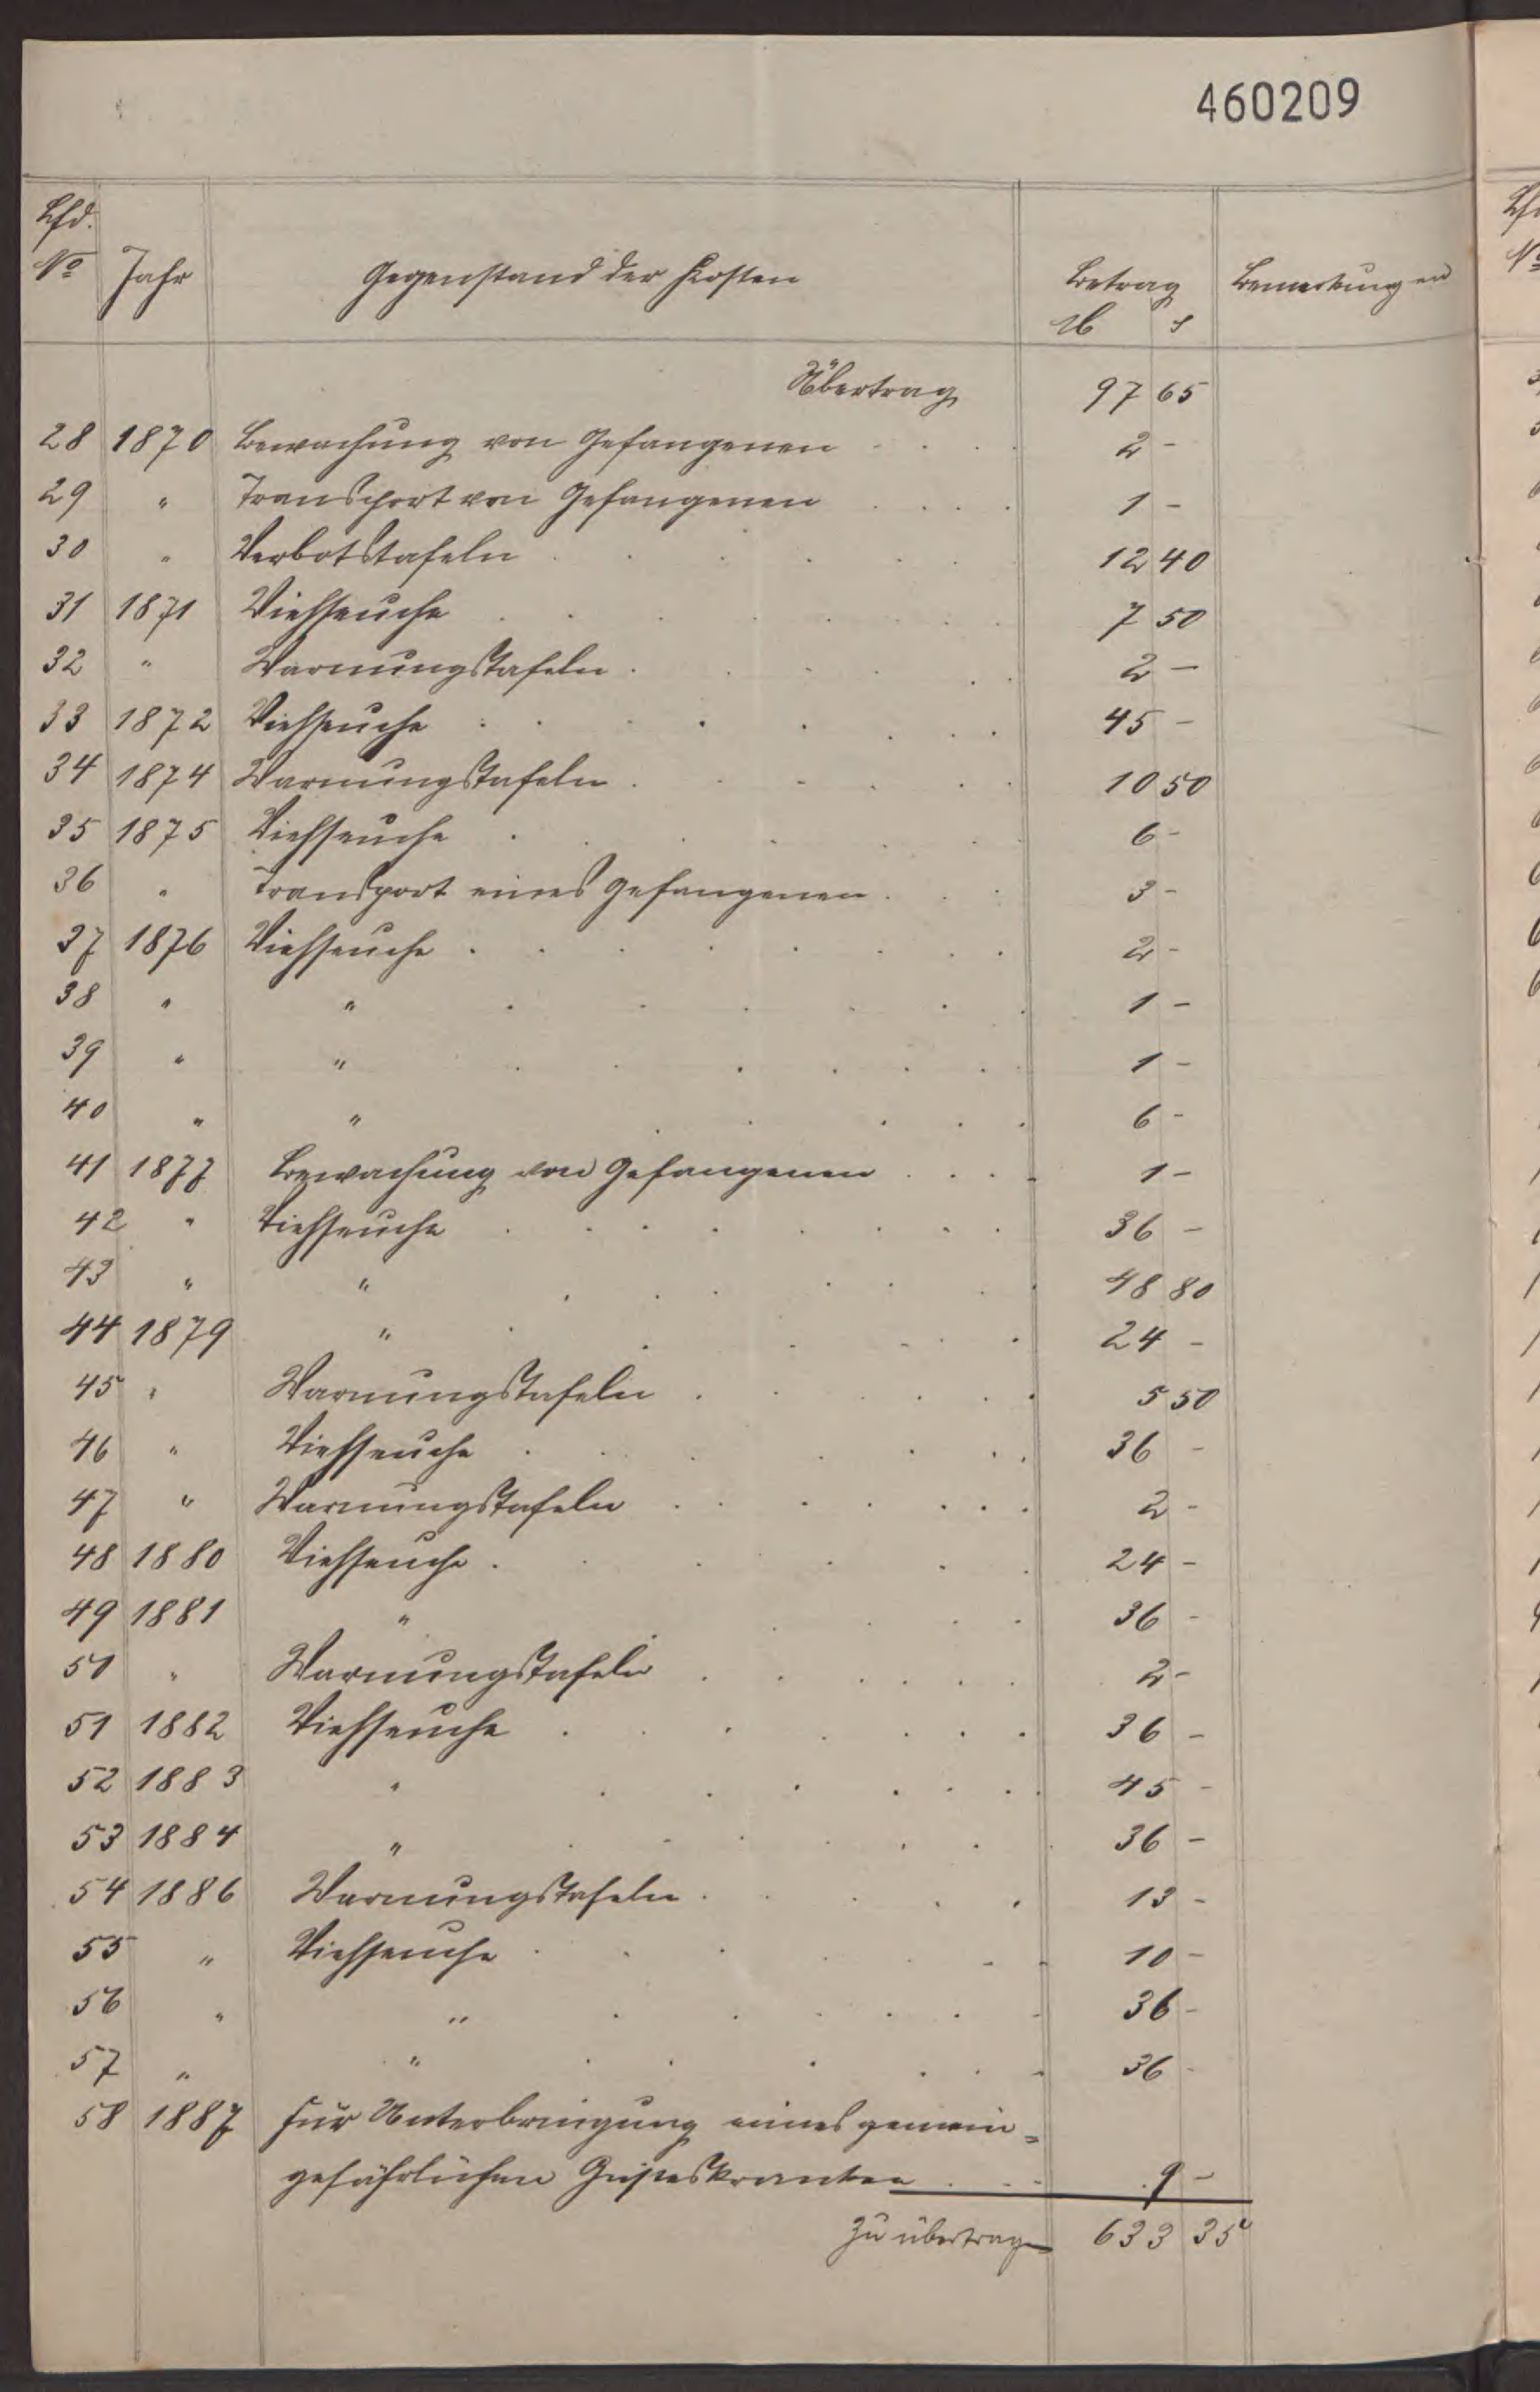 460209
Lfd.
No Jahr Gegenstand der Kosten Betrag Bemerkungen
M ₰
Übertrag 97 65
28 1870 Bewachung von Gefangenen . . . 2 -
29 " Transport von Gefangenen . . . . 1 -
30 " Verbotstafeln . . . . . 12 40
31 1871 Viehseuche . . . . . . . 7 50
32 " Warnungstafeln . . . . . . 2 -
33 1872 Viehseuche . . . . . . . . 45 -
34 1874 Warnungstafeln . . . . . . 10 50
35 1875 Viehseuche . . . . . . . 6 -
36 " Transport eines Gefangenen . . . 3 -
37 1876 Viehseuche . . . . . . . . 2 -
38 " " . . . . . . 1 -
39 " " . . . . . . . 1 -
40 " " . . . . . 6 -
41 1877 Bewachung von Gefangenen . . . . 1 -
42 " Viehseuche . . . . . . . . 36 -
43 " " . . . . . . . 48 80
44 1879 " . . . . . . 24 -
45 " Warnungstafeln . . . . . . 5 50
46 " Viehseuche . . . . . . . 36 -
47 " Warnungstafeln . . . . . . . 2 -
48 1880 Viehseuche . . . . . . 24 -
49 1881 " . . . . 36 -
50 " Warnungstafeln . . . . . . 2 -
51 1882 Viehseuche . . . . . . 36 -
52 1883 " . . . . . . . 45 -
53 1884 " . . . . . . 36 -
54 1886 Warnungstafeln . . . . . 13 -
55 " Viehseuche . . . . . . . 10 -
56 " " . . . . . 36 -
57 " " . . . . . . 36 -
58 1887 Für Unterbringung eines gemein=
gefährlichen Geisteskranken . . . 9 -
Zu übertragen 633 35